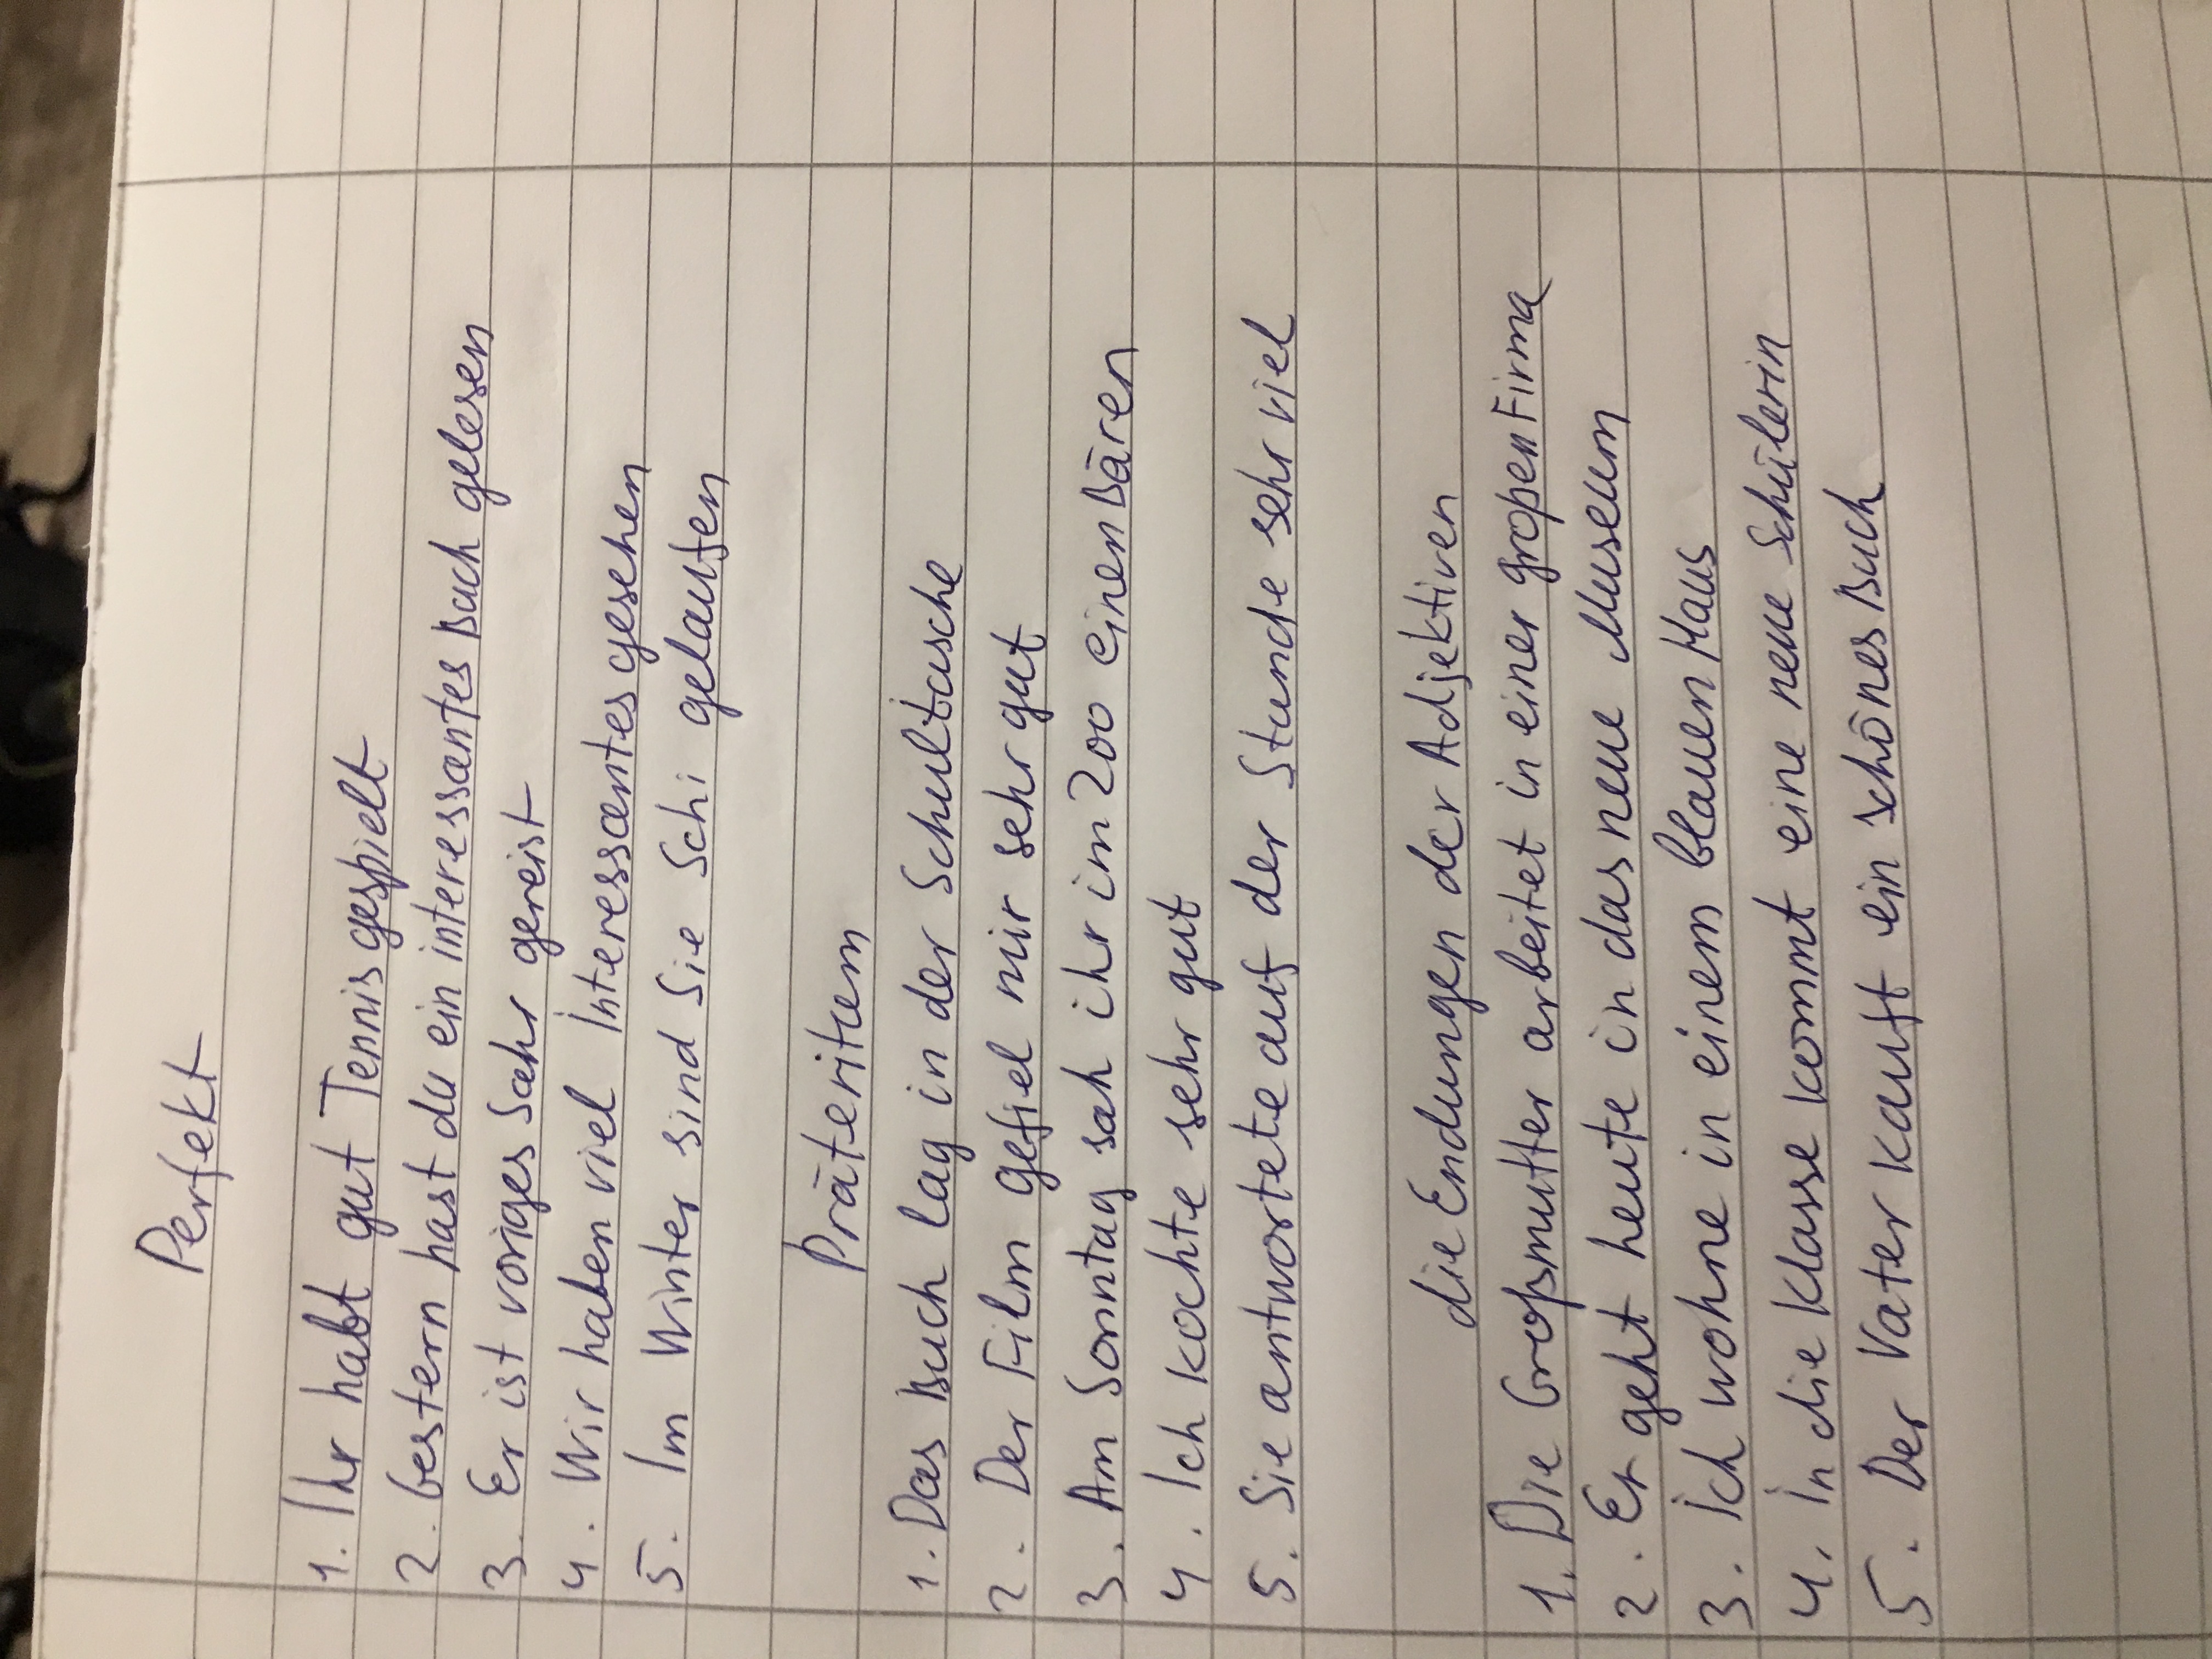 Perfekt
1. Ihr habt gut Tennis gespielt
2. Gestern hast du ein interessantes Buch gelesen
3. Er ist voriges Jahr gereist
4. Wir haben viel Interessantes gesehen
5. Im Winter sind Sie Schi gelaufen
Präteritum
1. Das Buch lag in der Schultasche
2. Der Film gefiel mir sehr gut
3. Am Sonntag sah ihr im Zoo einen Bären
4. Ich kochte sehr gut
5. Sie antwortete auf der Stunde sehr viel
die Endungen der Adjektiven
1. Die Großmutter arbeitet in einer großen Firma
2. Er geht heute in das neue Museum
3. Ich wohne in einem blauen Haus
4. In die Klasse kommt eine neue Schülerin
5. Der Vater kauft ein schönes Buch